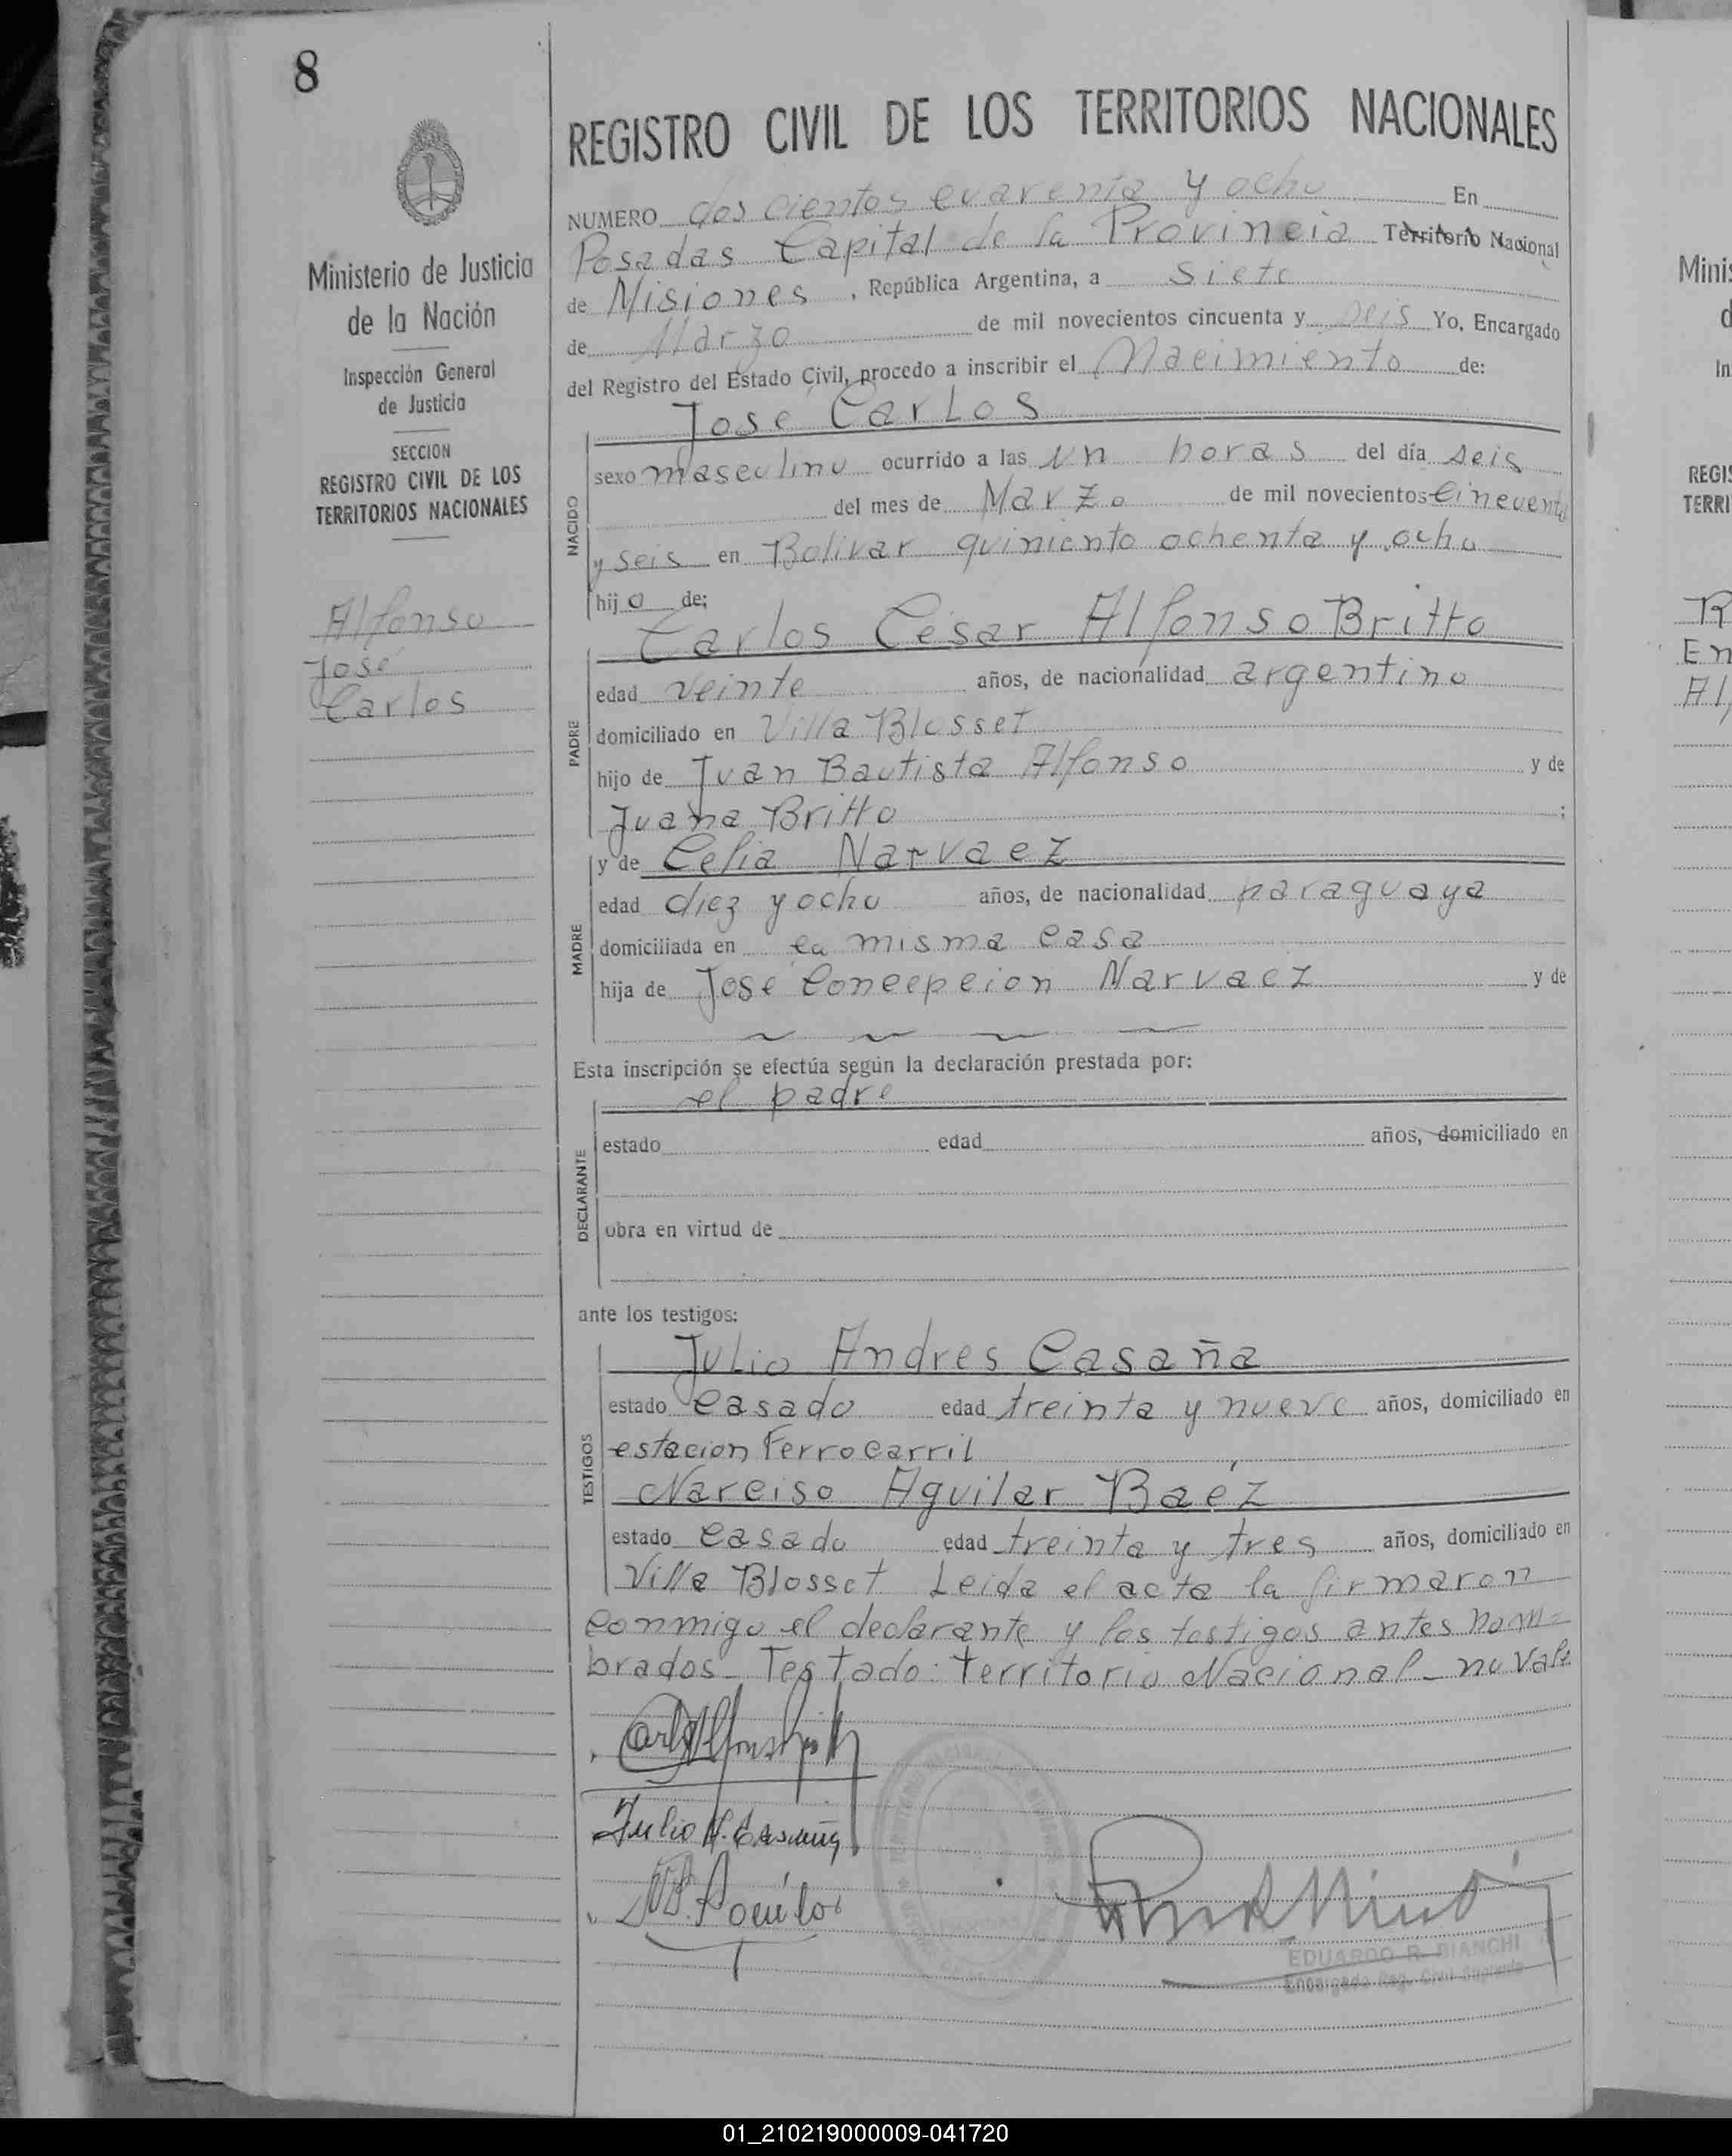 8
REGISTRO CIVIL DE LOS TERRITORIOS NACIONALES
Ministerio de Justicia
de la Nación
Inspección General
de Justicia
SECCION
REGISTRO CIVIL DE LOS
TERRITORIOS NACIONALES
Alfonso
José
Carlos
NUMERO doscientos cuarenta y ocho En
Posadas Capital de la Provincia Territorio Nacional
de Misiones, República Argentina, a siete
de Marzo de mil novecientos cincuenta y seis Yo, Encargado
del Registro del Estado Civil, procedo a inscribir el Nacimiento de:
José Carlos
NACIDO
sexo masculino ocurrido a las un horas del día seis
del mes de Marzo de mil novecientos cincuenta
y seis en Bolivar quiniento ochenta y ocho
hijo de;
Carlos César Alfonso Britto
PADRE
edad veinte años, de nacionalidad argentino
domiciliado en Villa Blosset
hijo de Juan Bautista Alfonso y de
Juana Britto ;
y de Celia Narvaez
MADRE
edad diez y ocho años, de nacionalidad paraguaya
domiciliada en la misma casa
hija de José Concepcion Narvaez y de
Esta inscripción se efectúa según la declaración prestada por:
el padre
DECLARANTE
estado edad años, domiciliado en
obra en virtud de
ante los testigos:
Julio Andres Casaña
TESTIGOS
estado casado edad treinta y nueve años, domiciliado en
estacion Ferrocarril
Narciso Aguilar Baéz
estado casado edad treinta y tres años, domiciliado en
Villa Blosset Leida el acta la firmaron
conmigo el declarante y los testigos antes nom=
brados_ Testado: territorio Nacional_ no vale
Julio A. Casaña
EDUARDO R. BIANCHI
Encargado Reg. Civil Suplente
Minis
d
In
REGIS
TERRI
R
En
Al
01_210219000009-041720